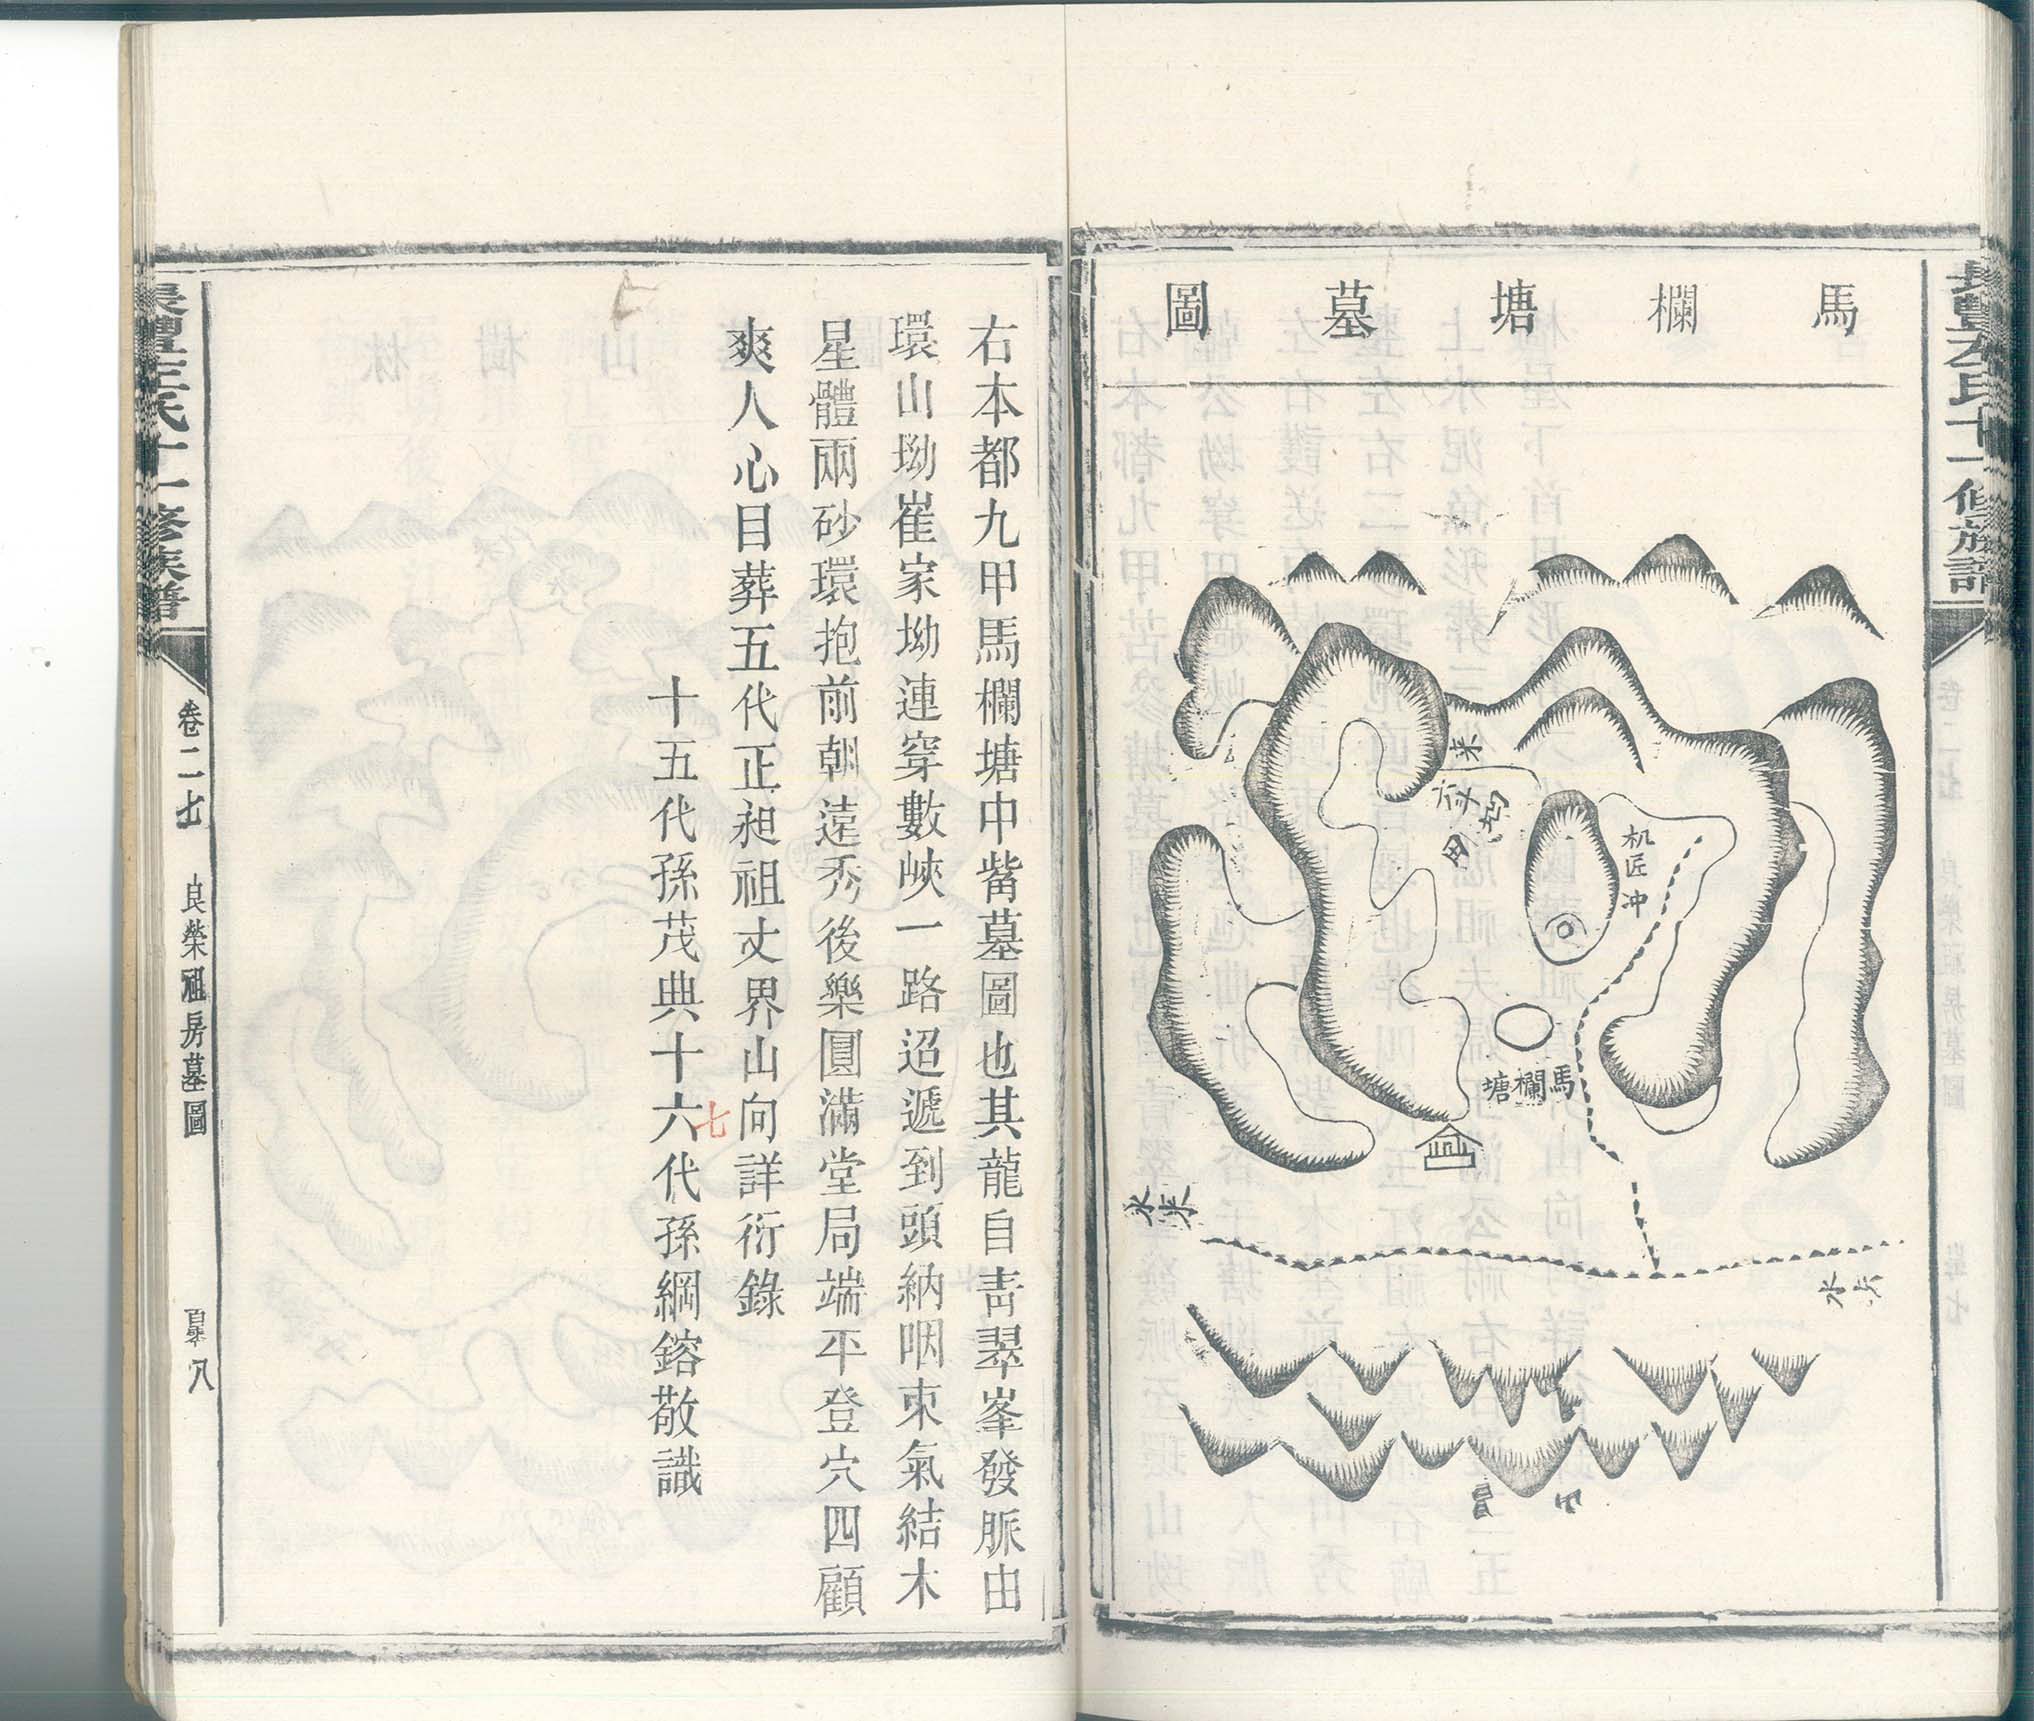 馬欄塘墓圖
来
六斗
机匠冲
馬欄塘
来水
水
右本都九甲馬欄塘中嘴墓圖也其龍自青翠峯發脈由
環山坳崔家坳連穿數峽一路迢遞到頭納咽束氣結木
星體兩砂環抱前朝遠秀後樂圓滿堂局端平登穴四顧
爽人心目葬五代正昶祖丈界山向詳衍錄
十五代孫茂典十六代孫綱鎔敬識
七
氏十一修族譜
卷二七
良榮祖房墓圖
八